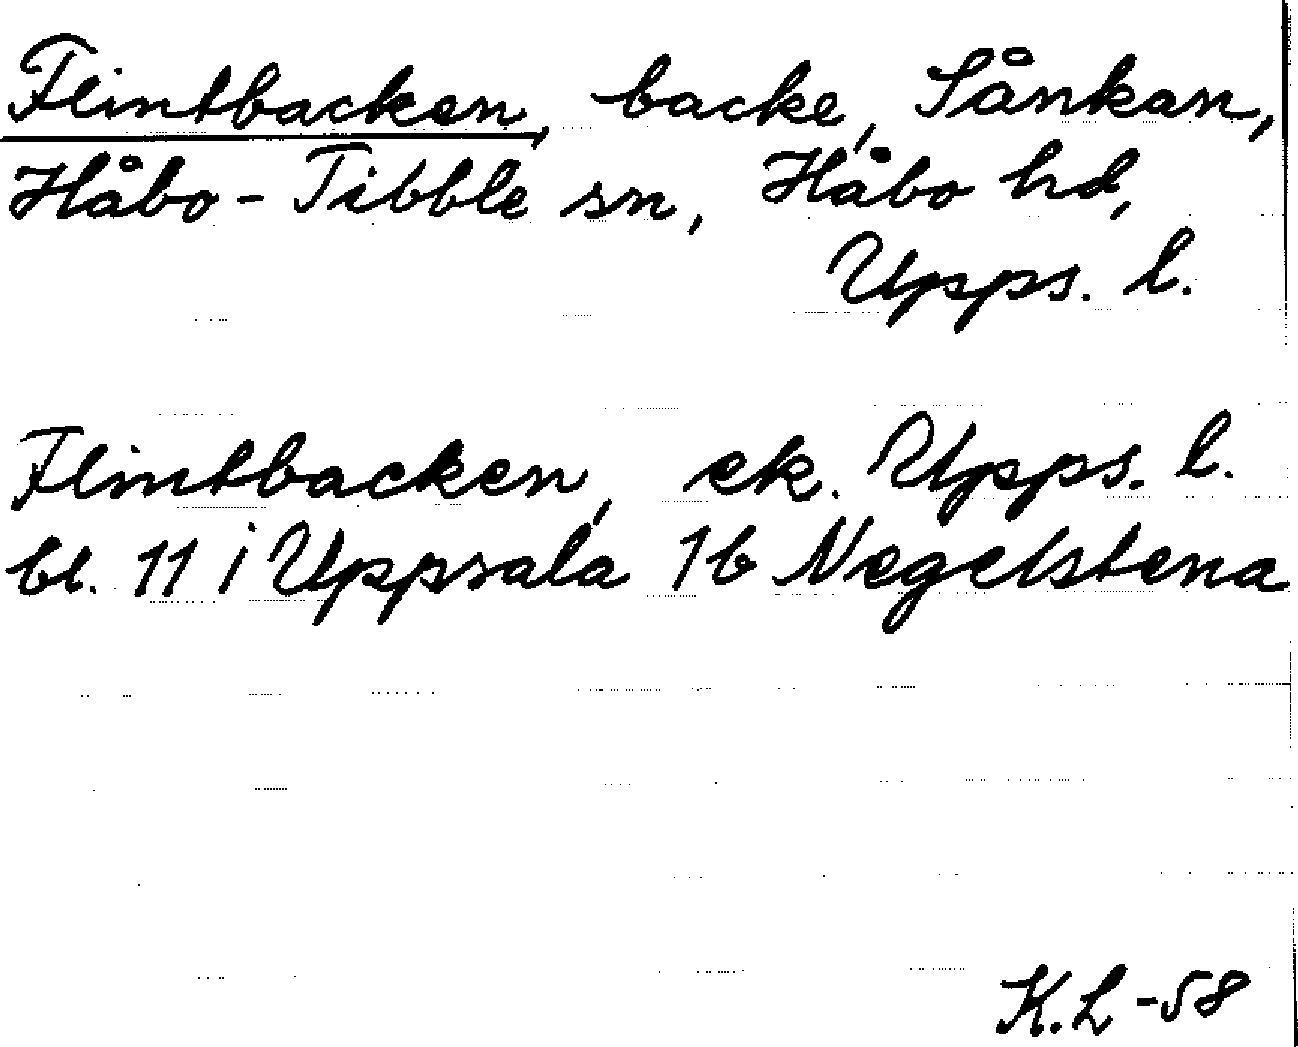 Flintbacken, backe, Sånkan,
Håbo-Tibble sn, Håbo hd,
Upps. l.
Flintbacken, ek. Upps. l.
bl. 11 i Uppsala 1b Negelstena
K.L -58